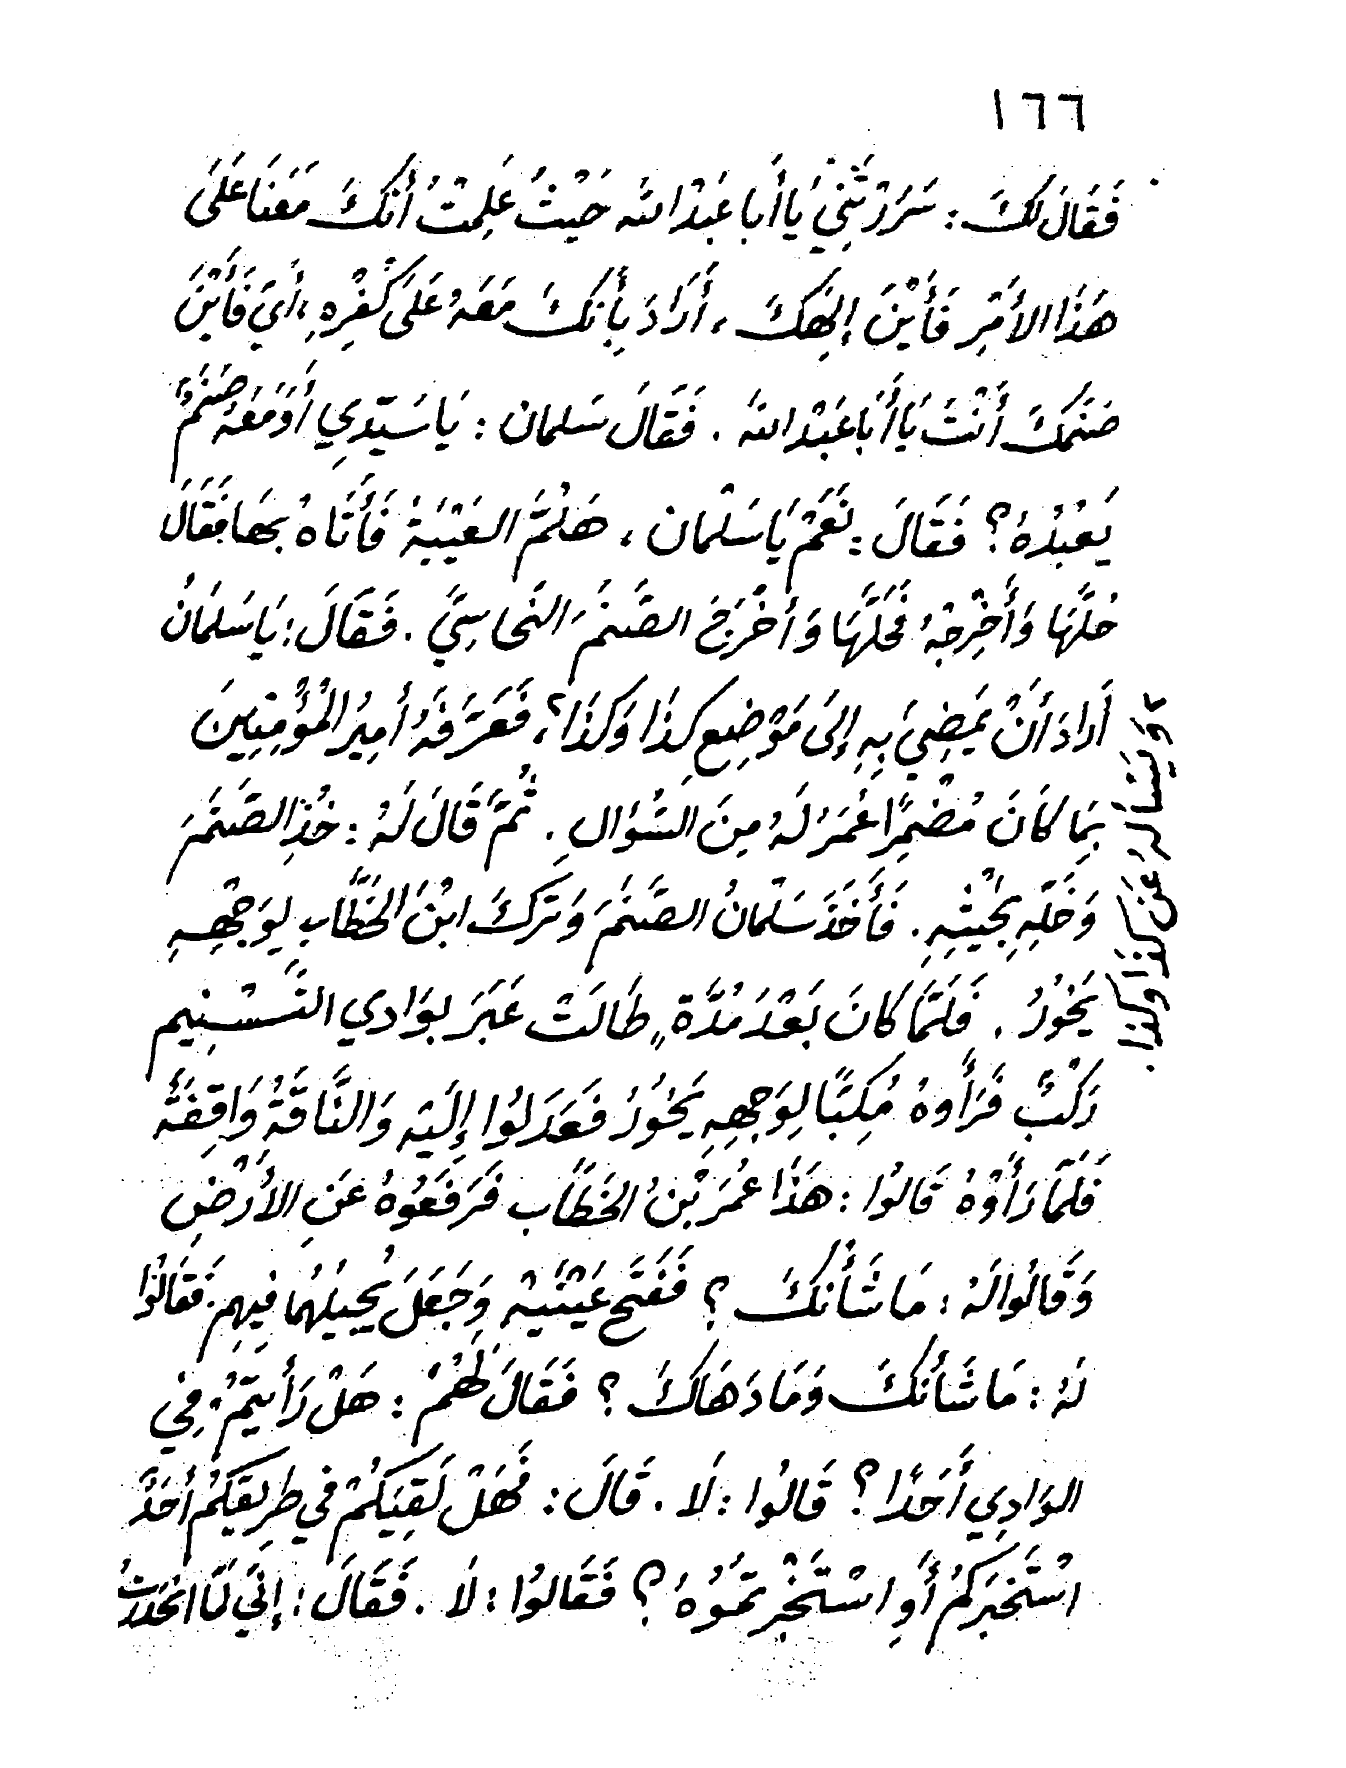 ١٦٦
فَقَالَ لَكَ : سَرَرْتَنِي يَا أَبَا عَبْدِ اللَّه حَيْثُ عَلِمْتُ أَنَّكَ مَعَنَا عَلَى
هَذَا الأَمْرِ فَأَيْنَ إِلَهَكَ ، أَرَادَ بِأَنَّكَ مَعَهُ عَلَى كُفْرِهِ ، أَيْ فَأَيْنَ
صَنَمَكَ أَنْتَ يَا أَبَا عَبْدِ اللَّهِ . فَقَالَ سَلمان : يَا سَيِّدِي أَوَمَعَهُ صَنَمٌ
يَعْبُدُهُ ؟ فَقَالَ : نَعَمْ يَا سَلْمان ، هَلُمَّ العَيْبَةُ فَأَتَاهُ بِهَا فَقَالَ
حُلَّهَا وَأَخْرِجْهُ فَحَلَّهَا وَأَخْرَجَ الصَّنَمَ النَّحاسِيَّ . فَقَالَ : يَا سَلمَانُ
أَرَادَ أَنْ يَمْضِيَ بِهِ إِلَى مَوْضِعِ كَذَا وَكَذَا ٢ ، فَعَرَّفَهُ أَمِيرُ المُؤْمِنِينَ
بِمَا كَانَ مُضْمِرًا عُمَرُ لَهُ مِنَ السُّؤَالِ . ثُمَّ قَالَ لَهُ : خُذِ الصَّنَمَ
وَخَلِّهِ بِجُثَّتِهِ . فَأَخَذَ سَلْمَانُ الصَّنَمَ وَتَرَكَ ابْنَ الخَطَّابِ لِوَجْهِهِ
يَخُورُ . فَلَمَّا كَانَ بَعْدَ مُدَّةٍ طَالَتْ عَبَرَ بِوَادِي التَّسْنِيم
رَكْبٌ فَرَأَوهُ مُكِبًّا لِوَجهِهِ يَخُورُ فَعَدَلُوا إِلَيْهِ وَالنَّاقَةُ وَاقِفَةٌ
فَلَمَّا رَأَوْهُ قَالُوا : هَذَا عُمَرَ بْنُ الخَطَّاب فَرَفَعُوهُ عَنِ الأَرْضِ
وَقَالُوا لَهُ : مَا شَأْنُكَ ؟ فَفَتَحَ عَيْنَيْهِ وَجَعَلَ يُحِيلُهُمَا فِيهِم . فَقَالُوا
لَهُ : مَا شَأْنُكَ وَمَا دَهَاكَ ؟ فَقَالَ لَهُمْ : هَلْ رَأَيتُمْ فِي
الوَادِي أَحَدًا ؟ قَالُوا : لَا . قَالَ : فَهَلْ لَقِيَكُمْ في طَرِيقِكُم أَحَدٌ
اسْتَخبَرَكُمْ أَوِ اسْتَخْبَرتُمُوهُ ؟ فَقَالُوا : لَا . فَقَالَ : إِنِّي لَمَّا انْحَدَرتُ
٢ وَيَسْأَلُهُ عَنْ كَذَا وَكَذَا .